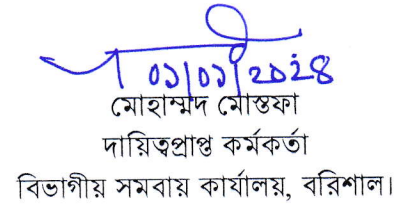 ০১/০১/২০২৪
মোহাম্মদ মোস্তফা
দায়িত্বপ্রাপ্ত কর্মকর্তা
বিভাগীয় সমবায় কার্যালয়, বরিশাল।